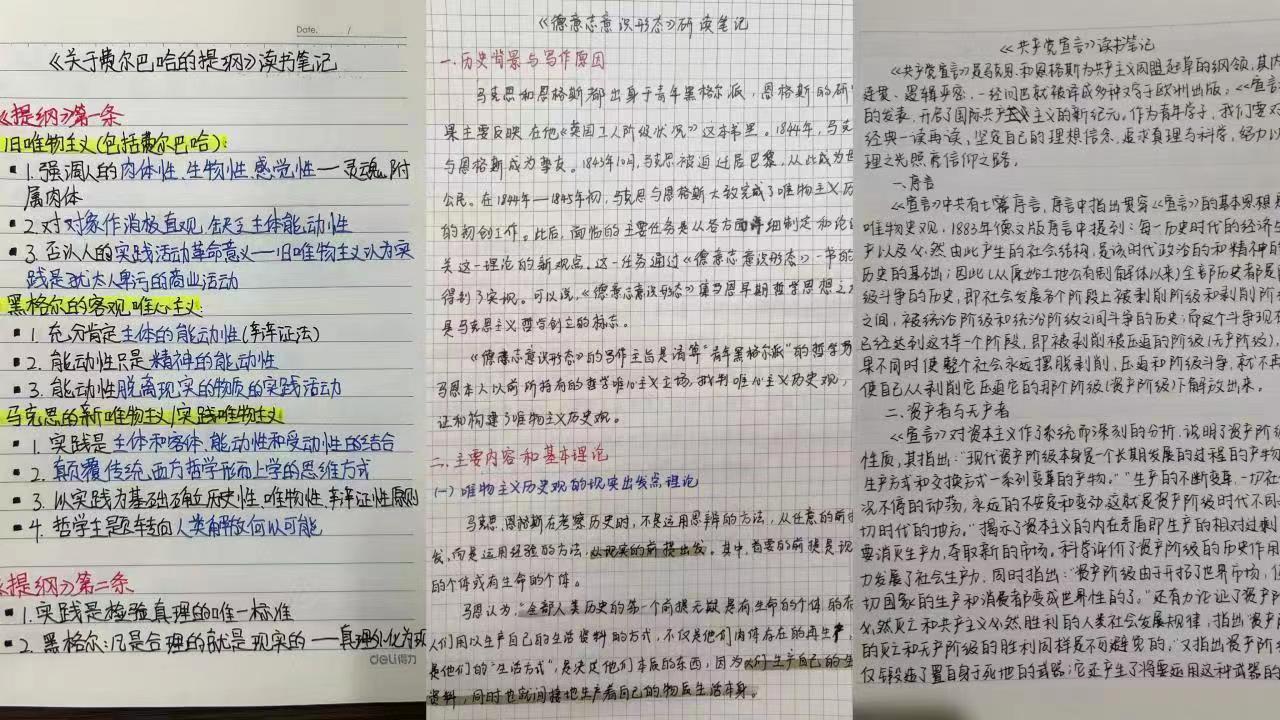 Date. /
《关于费尔巴哈的提纲》读书笔记
《提纲》第一条
旧唯物主义(包括费尔巴哈):
1.强调人的肉体性、生物性、感觉性——灵魂附
属肉体
2.对对象作消极直观,缺乏主体能动性
3.否认人的实践活动革命意义——旧唯物主义认为实
践是犹太人卑污的商业活动
黑格尔的客观唯心主义:
1.充分肯定主体的能动性(辩证法)
2.能动性只是精神的能动性
3.能动性脱离现实的物质的实践活动
马克思的新唯物主义/实践唯物主义
1.实践是主体和客体、能动性和受动性的结合
2.颠覆传统西方哲学形而上学的思维方式
3.以实践为基础确立历史性、唯物性、辩证性原则
4.哲学主题转向人类解放何以可能
《提纲》第二条
1.实践是检验真理的唯一标准
2.黑格尔:凡是合理的就是现实的——真理外化为现
deli得力
《德意志意识形态》研读笔记
一、历史背景与写作原因
马克思和恩格斯都出身于青年黑格尔派,恩格斯的研
果主要反映在他《英国工人阶级状况》这本书里。1844年,马克
与恩格斯成为挚友。1843年10月,马克思被迫迁居巴黎,从此成为世
公民。在1844年—1845年初,马克思与恩格斯大致完成了唯物主义历
的初创工作。此后,面临的主要任务是从各方面详细制定和论
关这一理论的新观点。这一任务通过《德意志意识形态》一书的
得到了实现。可以说,《德意志意识形态》集马恩早期哲学思想之大
是马克思主义哲学创立的标志。
《德意志意识形态》的写作主旨是清算"青年黑格尔派"的哲学
马恩本人以前所持有的哲学唯心主义立场,批判唯心主义历史观,
证和构建了唯物主义历史观。
二、主要内容和基本理论
(一)唯物主义历史观的现实出发点理论
马克思、恩格斯在考察历史时,不是运用思辨的方法,从任意的前
发,而是运用经验的方法,从现实的前提出发。其中,首要的前提是现
的个体或有生命的个体。
马恩认为,"全部人类历史的第一个前提无疑是有生命的个体的存
人们用以生产自己的生活资料的方式,不仅是他们肉体存在的再生产,
是他们的"生活方式",是决定他们本质的东西,因为人们生产自己的生
资料,同时也就间接地生产着自己的物质生活本身。
《共产党宣言》读书笔记
《共产党宣言》是马克思和恩格斯为共产主义同盟起草的纲领,其内
连贯、逻辑严密,一经问世就被译成多种文字于欧洲出版,《宣言》
的发表,开启了国际共产主义的新纪元。作为青年学子,我们要对
经典一读再读,坚定自己的理想信念,追求真理与科学,努力以
理之光照亮信仰之路。
一、序言
《宣言》中共有七篇序言,序言中指出贯穿《宣言》的基本思想是
唯物史观,1883年德文版序言中提到:每一历史时代的经济生
产以及必然由此产生的社会结构,是该时代政治的和精神的
历史的基础;因此(从原始土地公有制解体以来)全部历史都是
级斗争的历史,即社会发展各个阶段上被剥削阶级和剥削阶
之间,被统治阶级和统治阶级之间斗争的历史;而这个斗争现在
已经达到这样一个阶段,即被剥削被压迫的阶级(无产阶级),
果不同时使整个社会永远摆脱剥削、压迫和阶级斗争,就不再
使自己从剥削它压迫它的那个阶级(资产阶级)下解放出来。
二、资产者与无产者
《宣言》对资本主义作了系统而深刻的分析,说明了资产阶级
性质,其指出:"现代资产阶级本身是一个长期发展的过程的产物,
生产方式和交换方式一系列变革的产物。""生产的不断变革,一切社
况不停的动荡,永远的不安定和变动这就是资产阶级时代不同
切时代的地方。"揭示了资本主义的内在矛盾即生产的相对过剩
要消灭生产力,夺取新的市场。科学评价了资产阶级的历史作用
力发展了社会生产力,同时指出:"资产阶级由于开拓了世界市场,使
切国家的生产和消费都变成世界性的了。"还有力论证了资产阶
必然灭亡和共产主义必然胜利的人类社会发展规律,指出资产
的灭亡和无产阶级的胜利同样是不可避免的,"又指出资产阶
仅锻造了置自身于死地的武器;它还产生了将要运用这种武器的